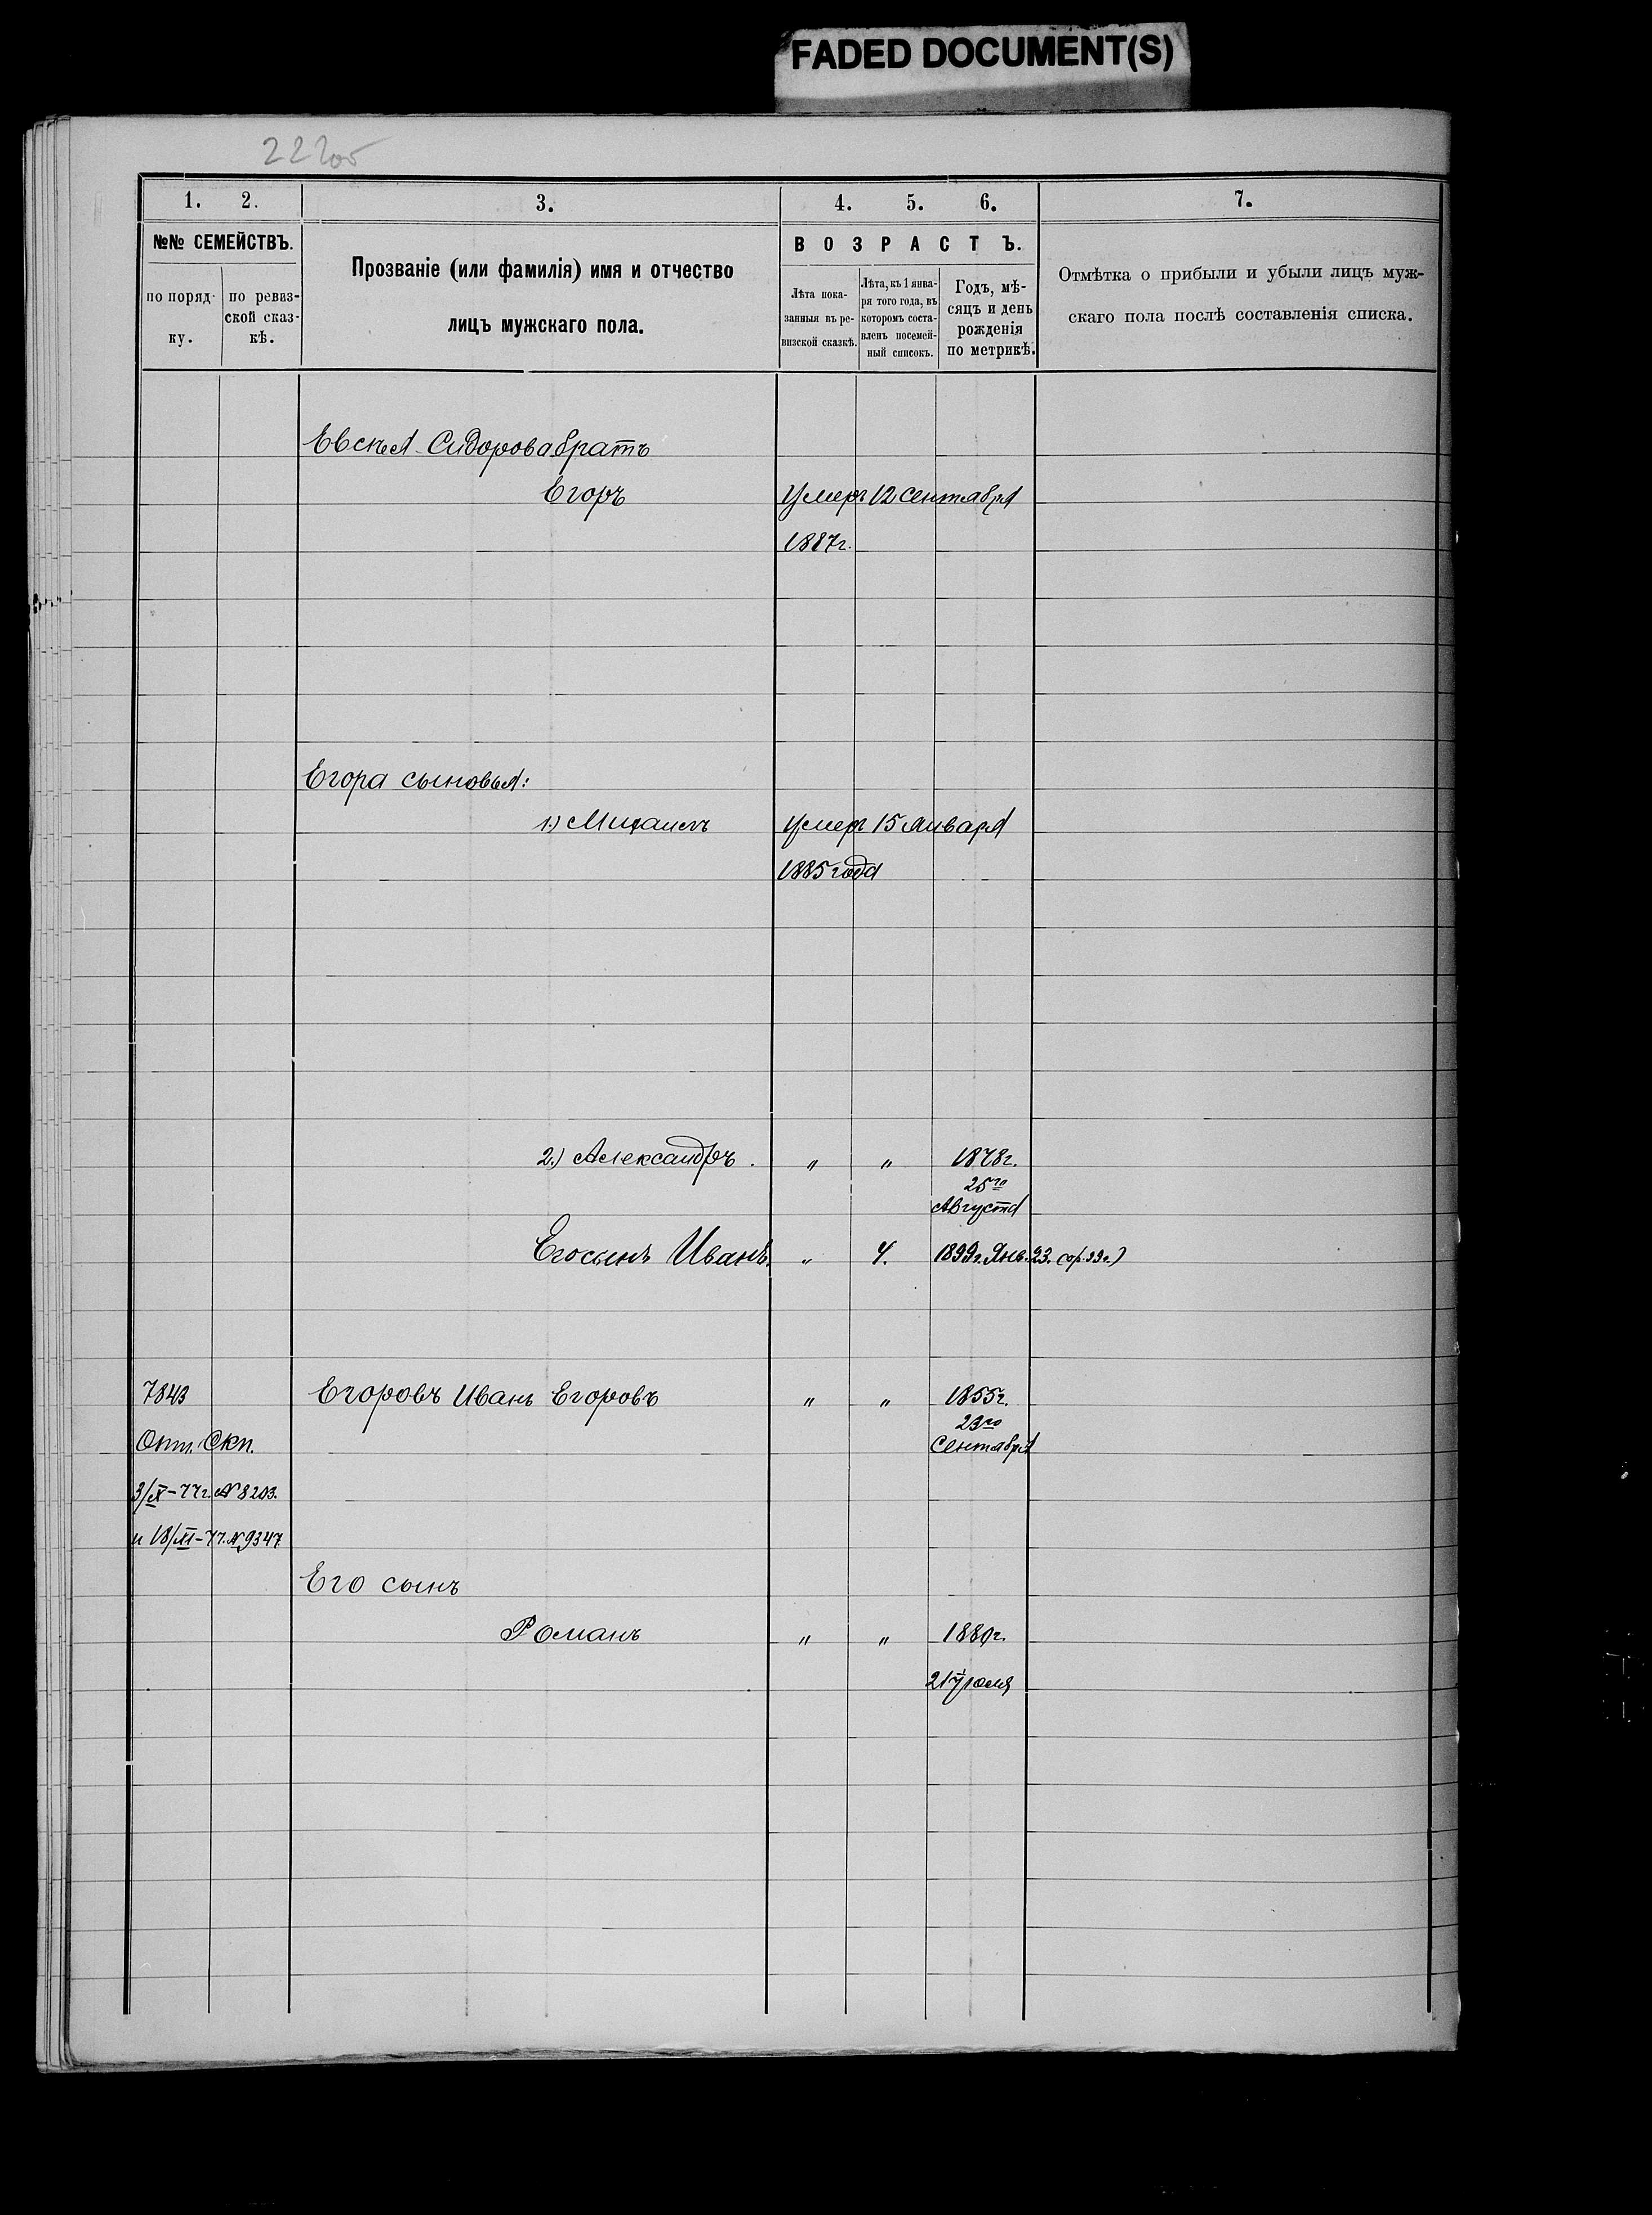 FADED DOCUMENT(S)
222об
1. 2. 3. 4. 5. 6. 7.
№№ СЕМЕЙСТВЪ.
по поряд-
ку.
по ревиз-
ской сказ-
кѣ.
Прозваніе (или фамилія) имя и отчество
лицъ мужскаго пола.
ВОЗРАСТЪ.
Лѣта пока-
занныя въ ре-
визской сказкѣ.
Лѣта, къ 1 янва-
ря того года, въ
которомъ соста-
вленъ посемей-
ный списокъ.
Годъ, мѣ-
сяцъ и день
рожденія
по метрикѣ.
Отмѣтка о прибыли и убыли лицъ муж-
скаго пола послѣ составленія списка.
Евсѣя Сидорова братъ
Егоръ Умеръ 12 сентября
1887г.
Егора сыновья:
1.) Михаилъ умеръ 15 января
1885 года
2.) Александръ. " " 1878г.
25го
Августа
Его сынъ Иванъ. " 4. 1899г. Янв. 23.
7843 Егоровъ Иванъ Егоровъ " " 1855г.
23го
Сентября
Отп. Скп.
3/X-77г. № 8203.
и 18/XI-77. № 9347
Его сынъ
Романъ " " 1880г.
21 Іюля